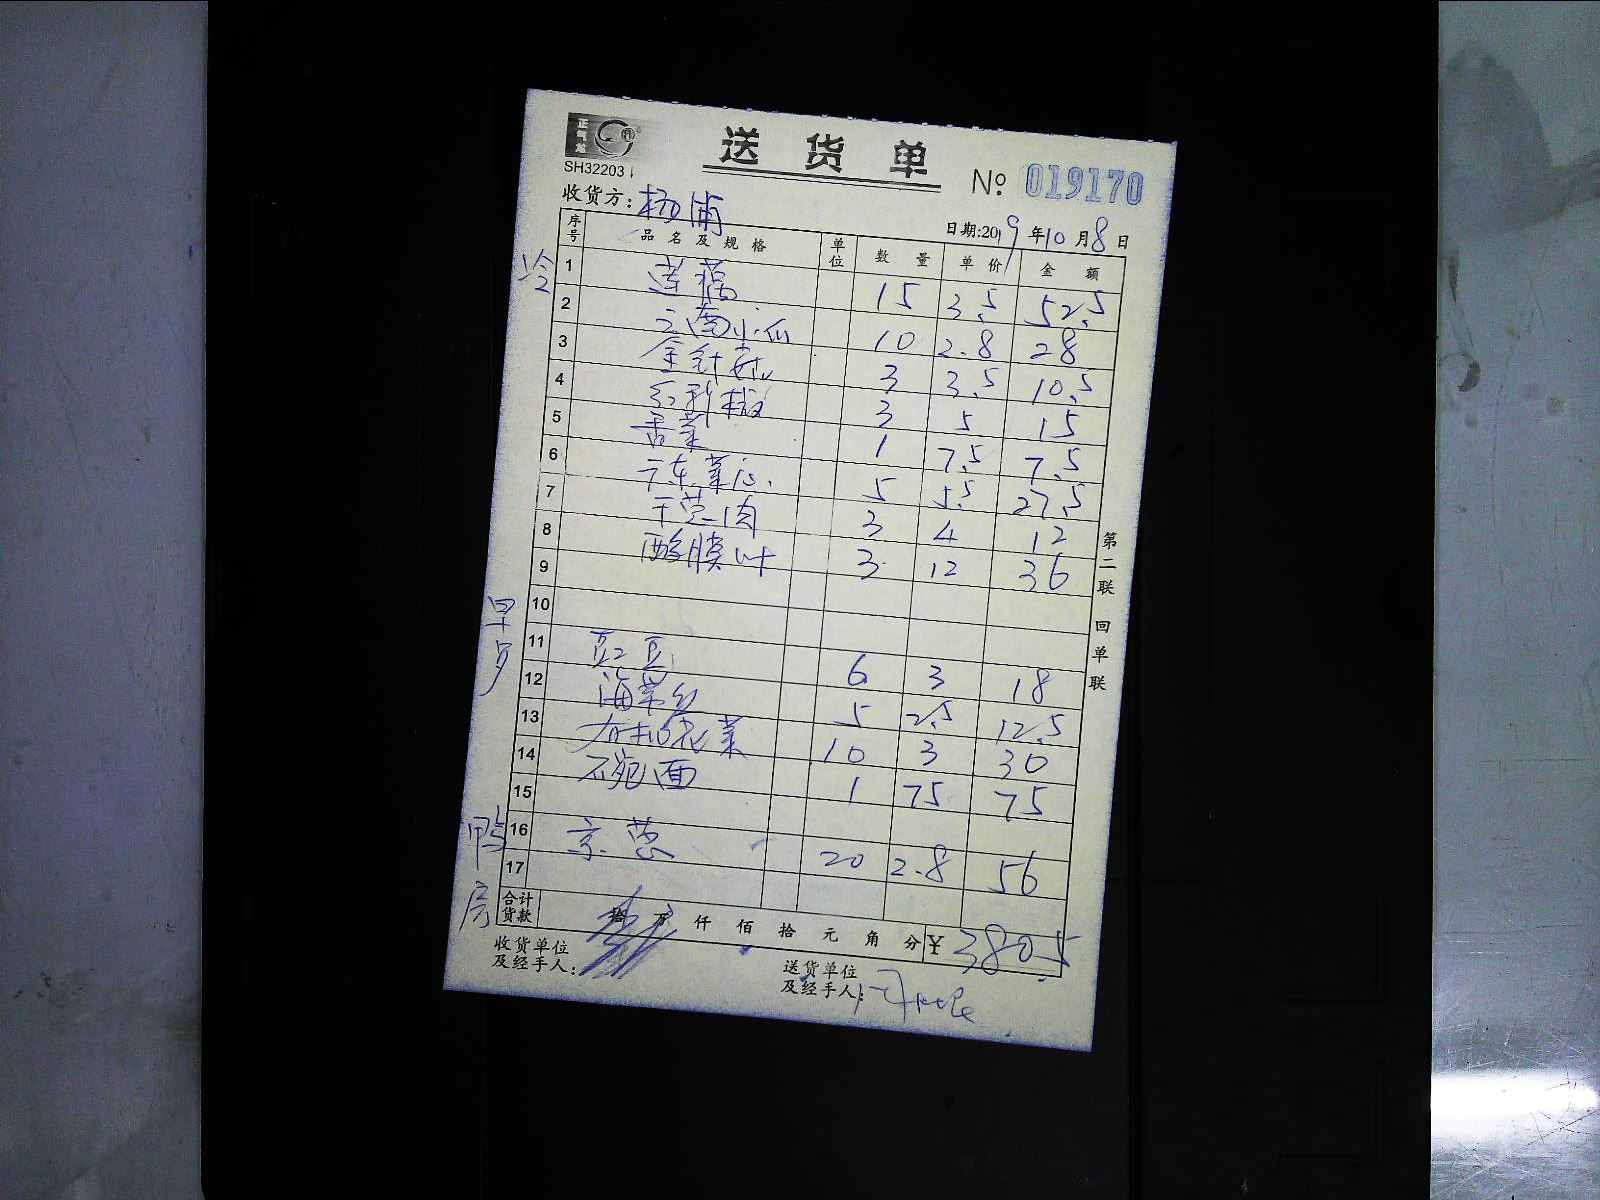 正气龙
SH32203
送货单
№ 019170
收货方：杨浦
日期:2019年10月8日
序号 品名及规格 单位 数量 单价 金额
冷
1 莲藕 15 3.5 52.5
2 云南小瓜 10 2.8 28
3 金针菇 3 3.5 10.5
4 红彩椒 3 5 15
5 香菜 1 7.5 7.5
6 广东菜心 5 5.5 27.5
7 干葱肉 3 4 12
8 酸膜叶 3 12 36
9
10
早歺
11 豇豆 6 3 18
12 海带丝 5 2.5 12.5
13 有机花菜 10 3 30
14 碗面 1 75 75
15
鸭房
16 京葱 20 2.8 56
17
合计货款 拾 万 仟 佰 拾 元 角 分 ¥ 380.5
收货单位及经手人：
送货单位及经手人：
第二联 回单联